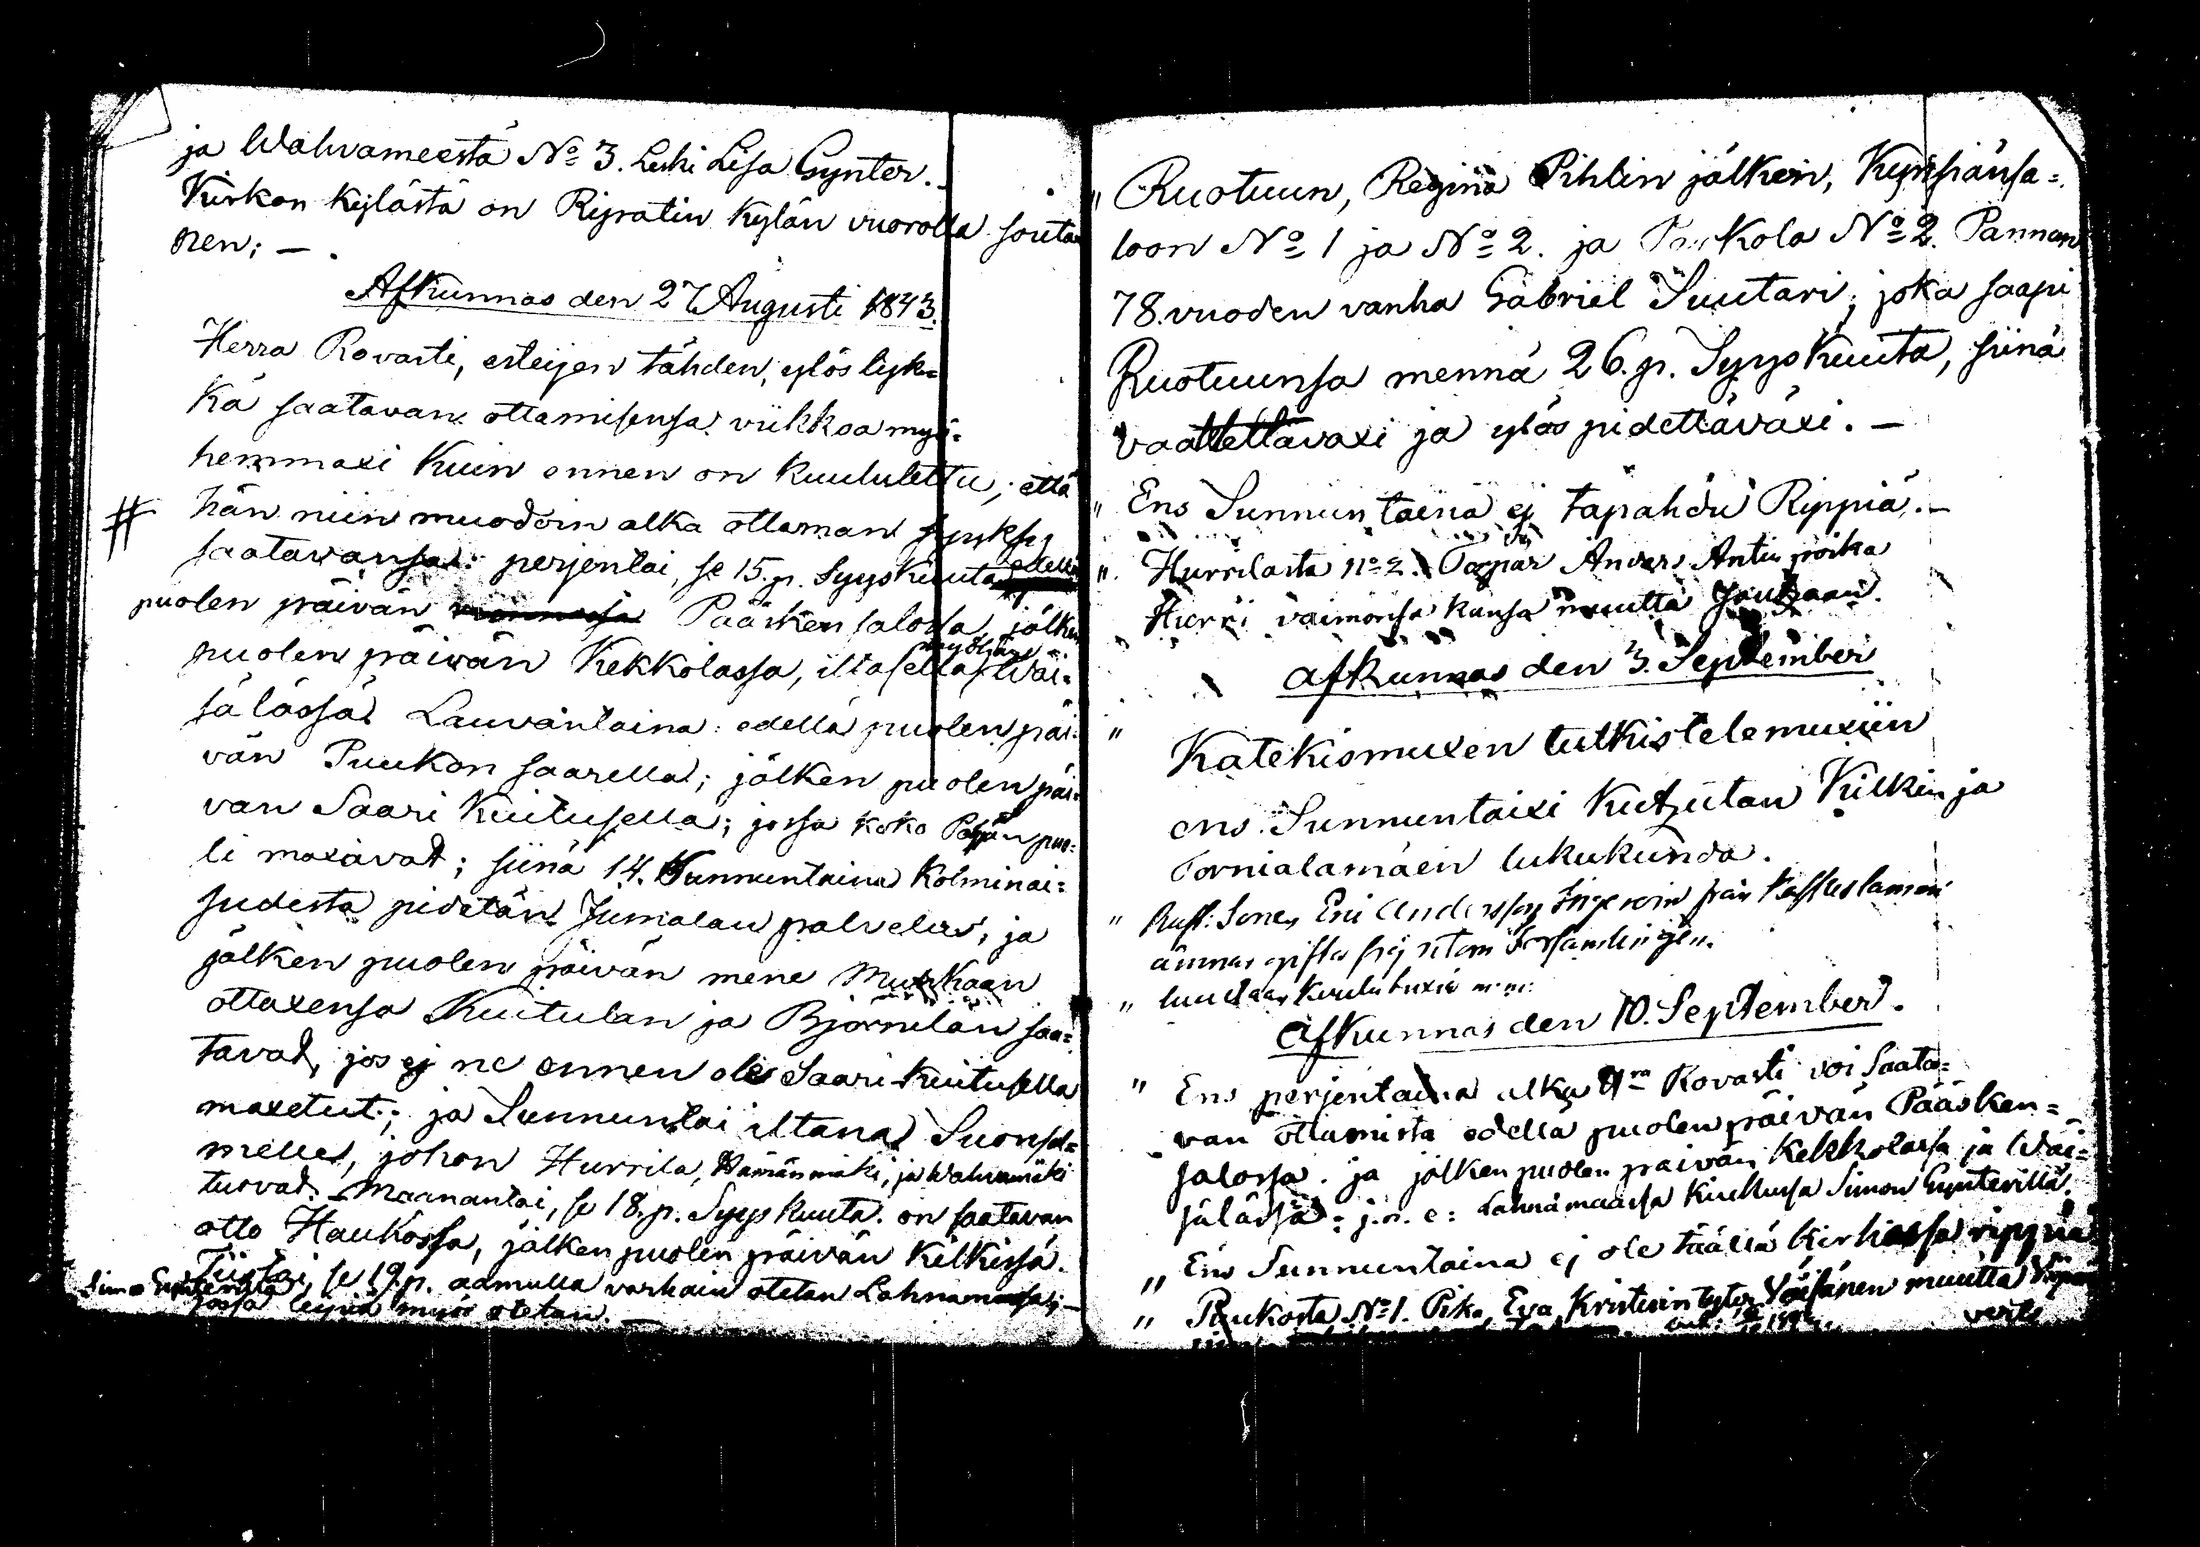 ja Wahvameestä No 3. Leski Lisa Gynter.
Kirkon Kylästä on Ryratin Kylän vuorolla souta
nen; —
Afkunnas den 27 Augusti 1843.
Herra Rovasti, esteijen tähden, ylös lyk=
kä saatavan ottamisensa viikkoa myö=
hemmaxi Kuin ennen on kuulutettu; että
# hän niin muodoin alka ottaman syyksy
saatavansa: perjentai, se 15. p. Syyskuuta edellä
puolen päivän Pääskensalossa jälken
puolen päivän Kekkolassa, iltasella myöhän Wäi=
sälässä Lauvantaina edellä puolen päi=
vän Puukon saarella; jälken puolen päi=
vän Saari Kuitusella; jossa koko Pohjan puo=
li maxavat; siinä 14. Sunnuntaina Kolminai=
sudesta pidetän Jumalan palvelus, ja
jälken puolen päivän mene Murkaan
ottaxensa Kuitulan ja Björnilän saa=
tavat, jos ej ne ennen ole Saari-kuitusella
maxetut; ja Sunnuntai iltana Suonsal=
melle, johon Hurrila, Hämänmäki, ja Wahvamäki
tuovat. Maanantai, se 18. p. Syyskuuta on saatavan
otto Haukossa, jälken puolen päivän Kilkissä.
Tiistai, se 19. p. aamulla varhain otetan Lahnamaasa;
Simo Gynterillä jossa leipiä myös otetan. —
" Ruotuun, Regina Pihlin jälkein, Kynsiänsa=
loon No 1 ja No 2. ja Puukola No 2. Pannan
78. vuoden vanha Gabriel Suutari; joka saapi
Ruotuunsa mennä 26. p. Syyskuuta, siinä
vaatettavaxi ja ylös pidettäväxi. —
" Ens Sunnuntaina ej tapahdu Rippiä. —
" Hurrilasta No 2. Anders Antin poika
Hurri vaimonsa kansa muutta Joukaan.
Afkunnas den 3. September
" Katekismuxen tutkistelemuxiin
ens Sunnuntaixi Kutzutan Kilkin ja
Tornialamäen lukukunda.
" Anderssen från
ämnar gifta sig
" Kuulutuxia
Afkunnas den 10. September.
" Ens perjentaina alka Hra Rovasti voi Saata=
van ottamista edellä puolen päivän Pääsken=
salossa. ja jälken puolen päivän Kekkolassa ja Wäi=
sälässä: j. n. e: Lahnamaassa Simon Gynterillä.
" Ens Sunnuntaina ej ole täällä kirkossa rippiä
" Puukosta No 1. Pika, Eva Kristerin tytär Väisänen muutta